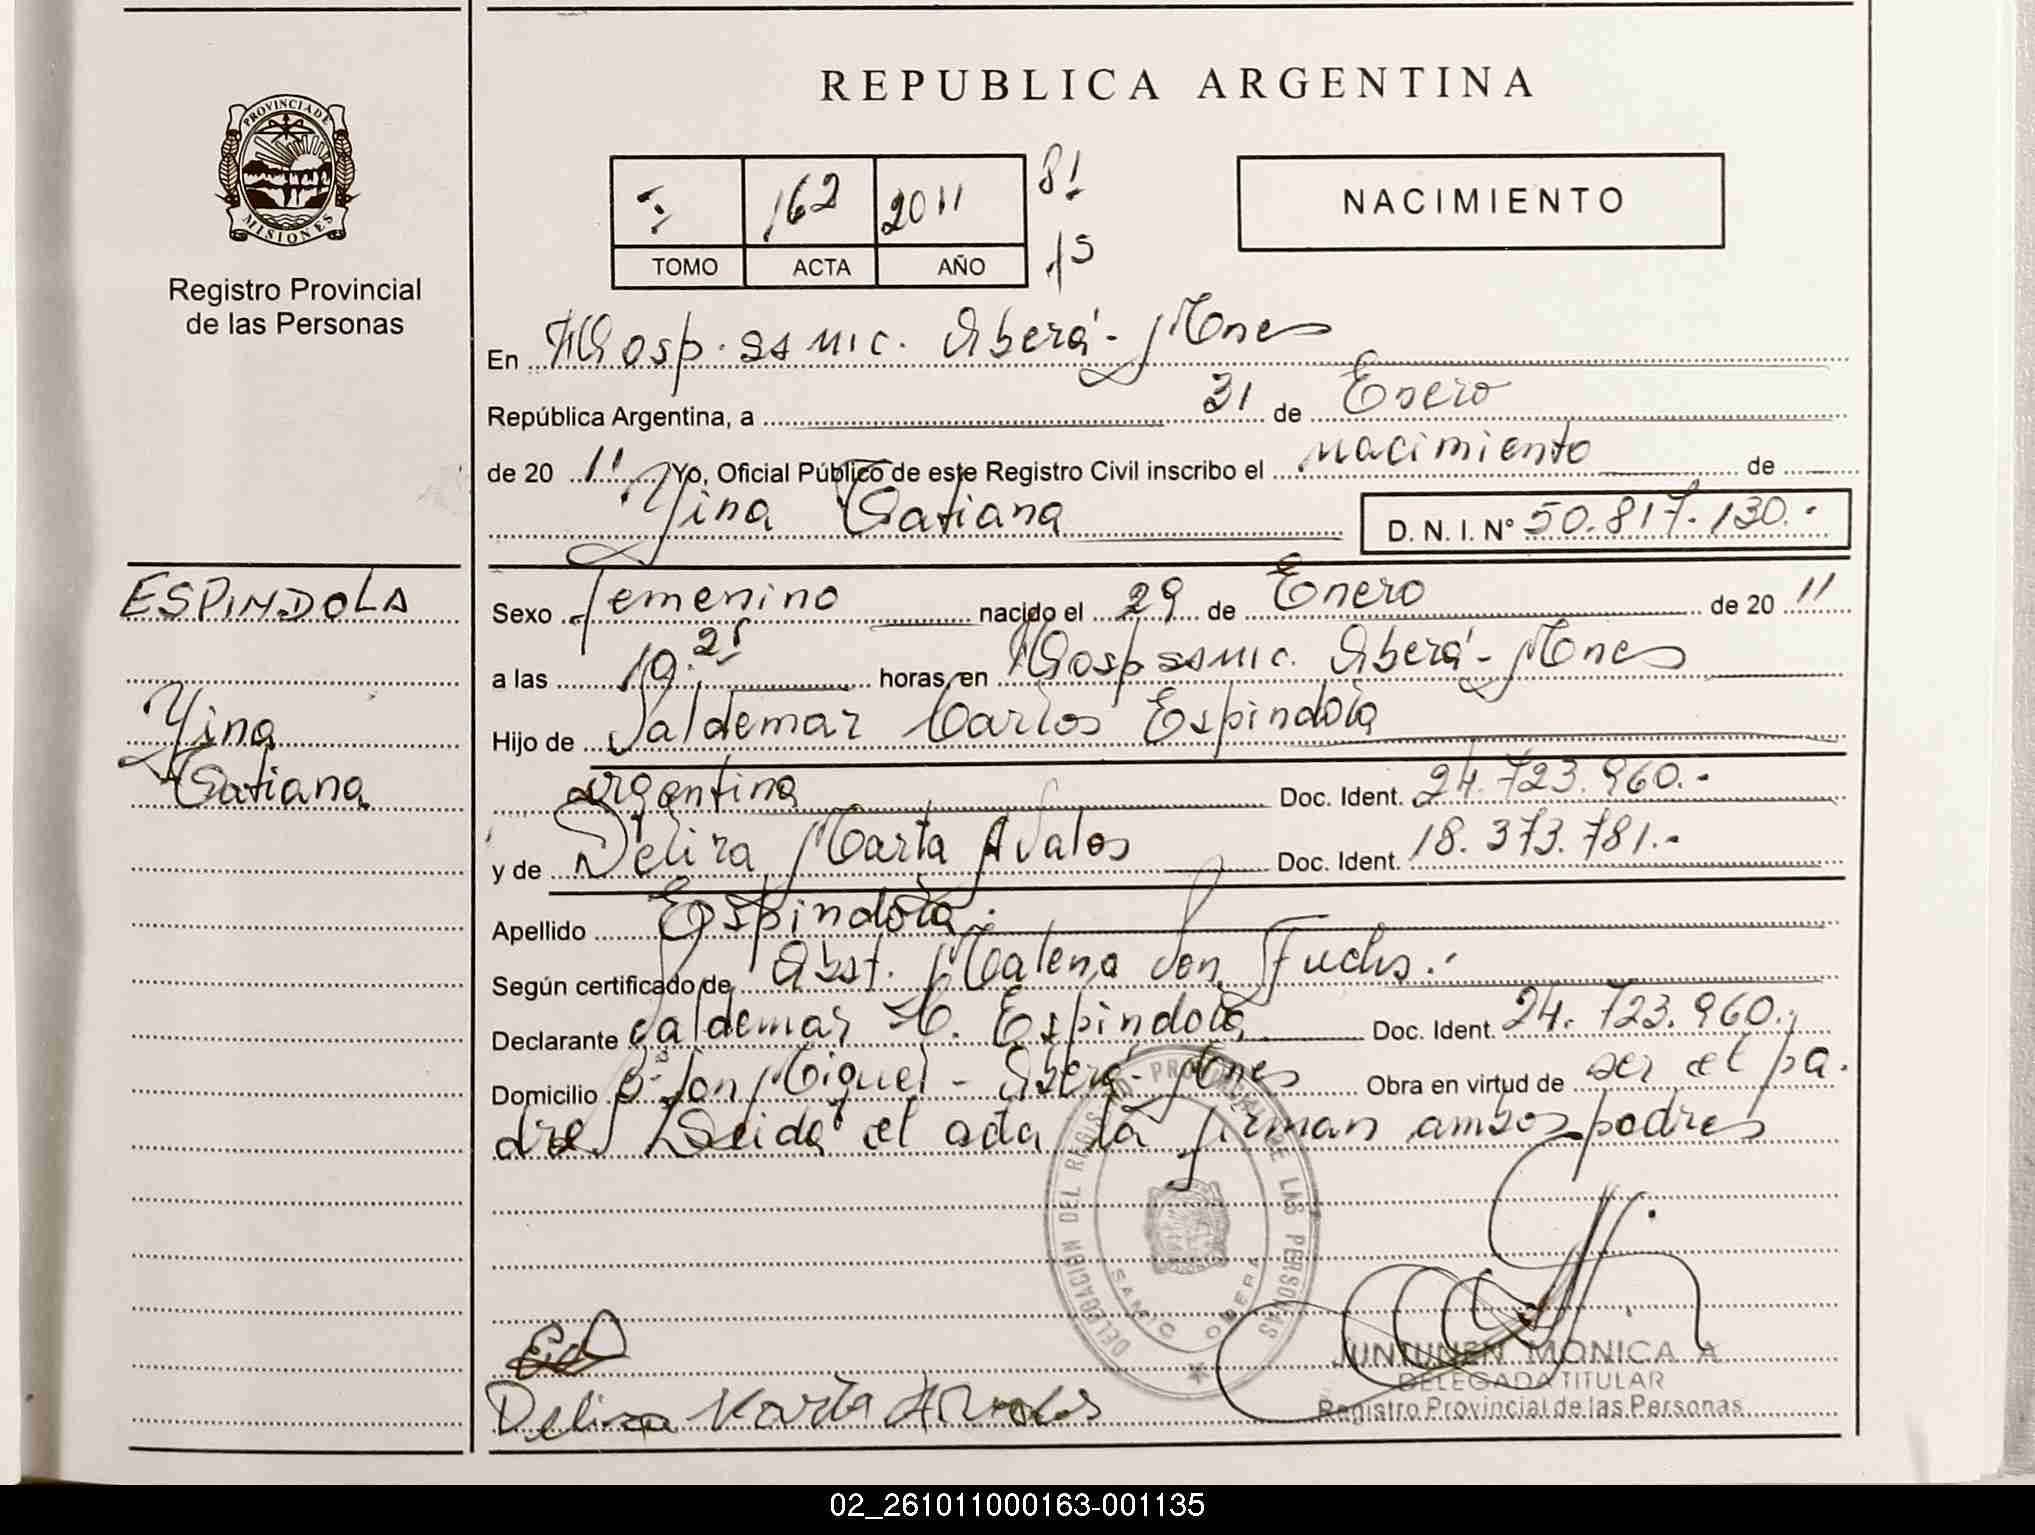 REPUBLICA ARGENTINA
PROVINCIA DE
MISIONES
Registro Provincial
de las Personas
I: 162 2011
TOMO ACTA AÑO
81
15
NACIMIENTO
En Hosp. ssmic. Oberá - Mnes
República Argentina, a 31 de Enero
de 20 11 Yo, Oficial Público de este Registro Civil inscribo el nacimiento de
Yina Tatiana D. N. I. Nº 50.817.130.-
ESPINDOLA
Yina
Tatiana
Sexo femenino nacido el 29 de Enero de 20 11
a las 19.25 horas, en Hosp ssmic. Oberá - Mnes
Hijo de Valdemar Carlos Espindola
argentina Doc. Ident. 24.723.960.-
y de Delira Marta Avalos Doc. Ident. 18.373.781.-
Apellido Espindola.
Según certificado de Obst. Malena Von Fuchs.-
Declarante Valdemar C. Espindola Doc. Ident. 24.723.960.
Domicilio Bº Von Miguel - Oberá - Mnes Obra en virtud de ser el pa.
dre Leida el acta la firman ambos padres
DELEGACION DEL REGISTRO PROVINCIAL DE LAS PERSONAS
OBERA
Delira Marta Avalos
JUNTUNEN MONICA A
DELEGADA TITULAR
Registro Provincial de las Personas
02_261011000163-001135